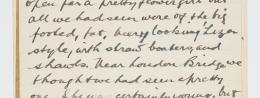 open for a pretty flower girl but
all we had seen were of the big
footed, fat, beery looking "Lizer"
style, with straw bonnets and
shawls. Near London Bridge we
thought we had seen a pretty
one. She was certainly young, but